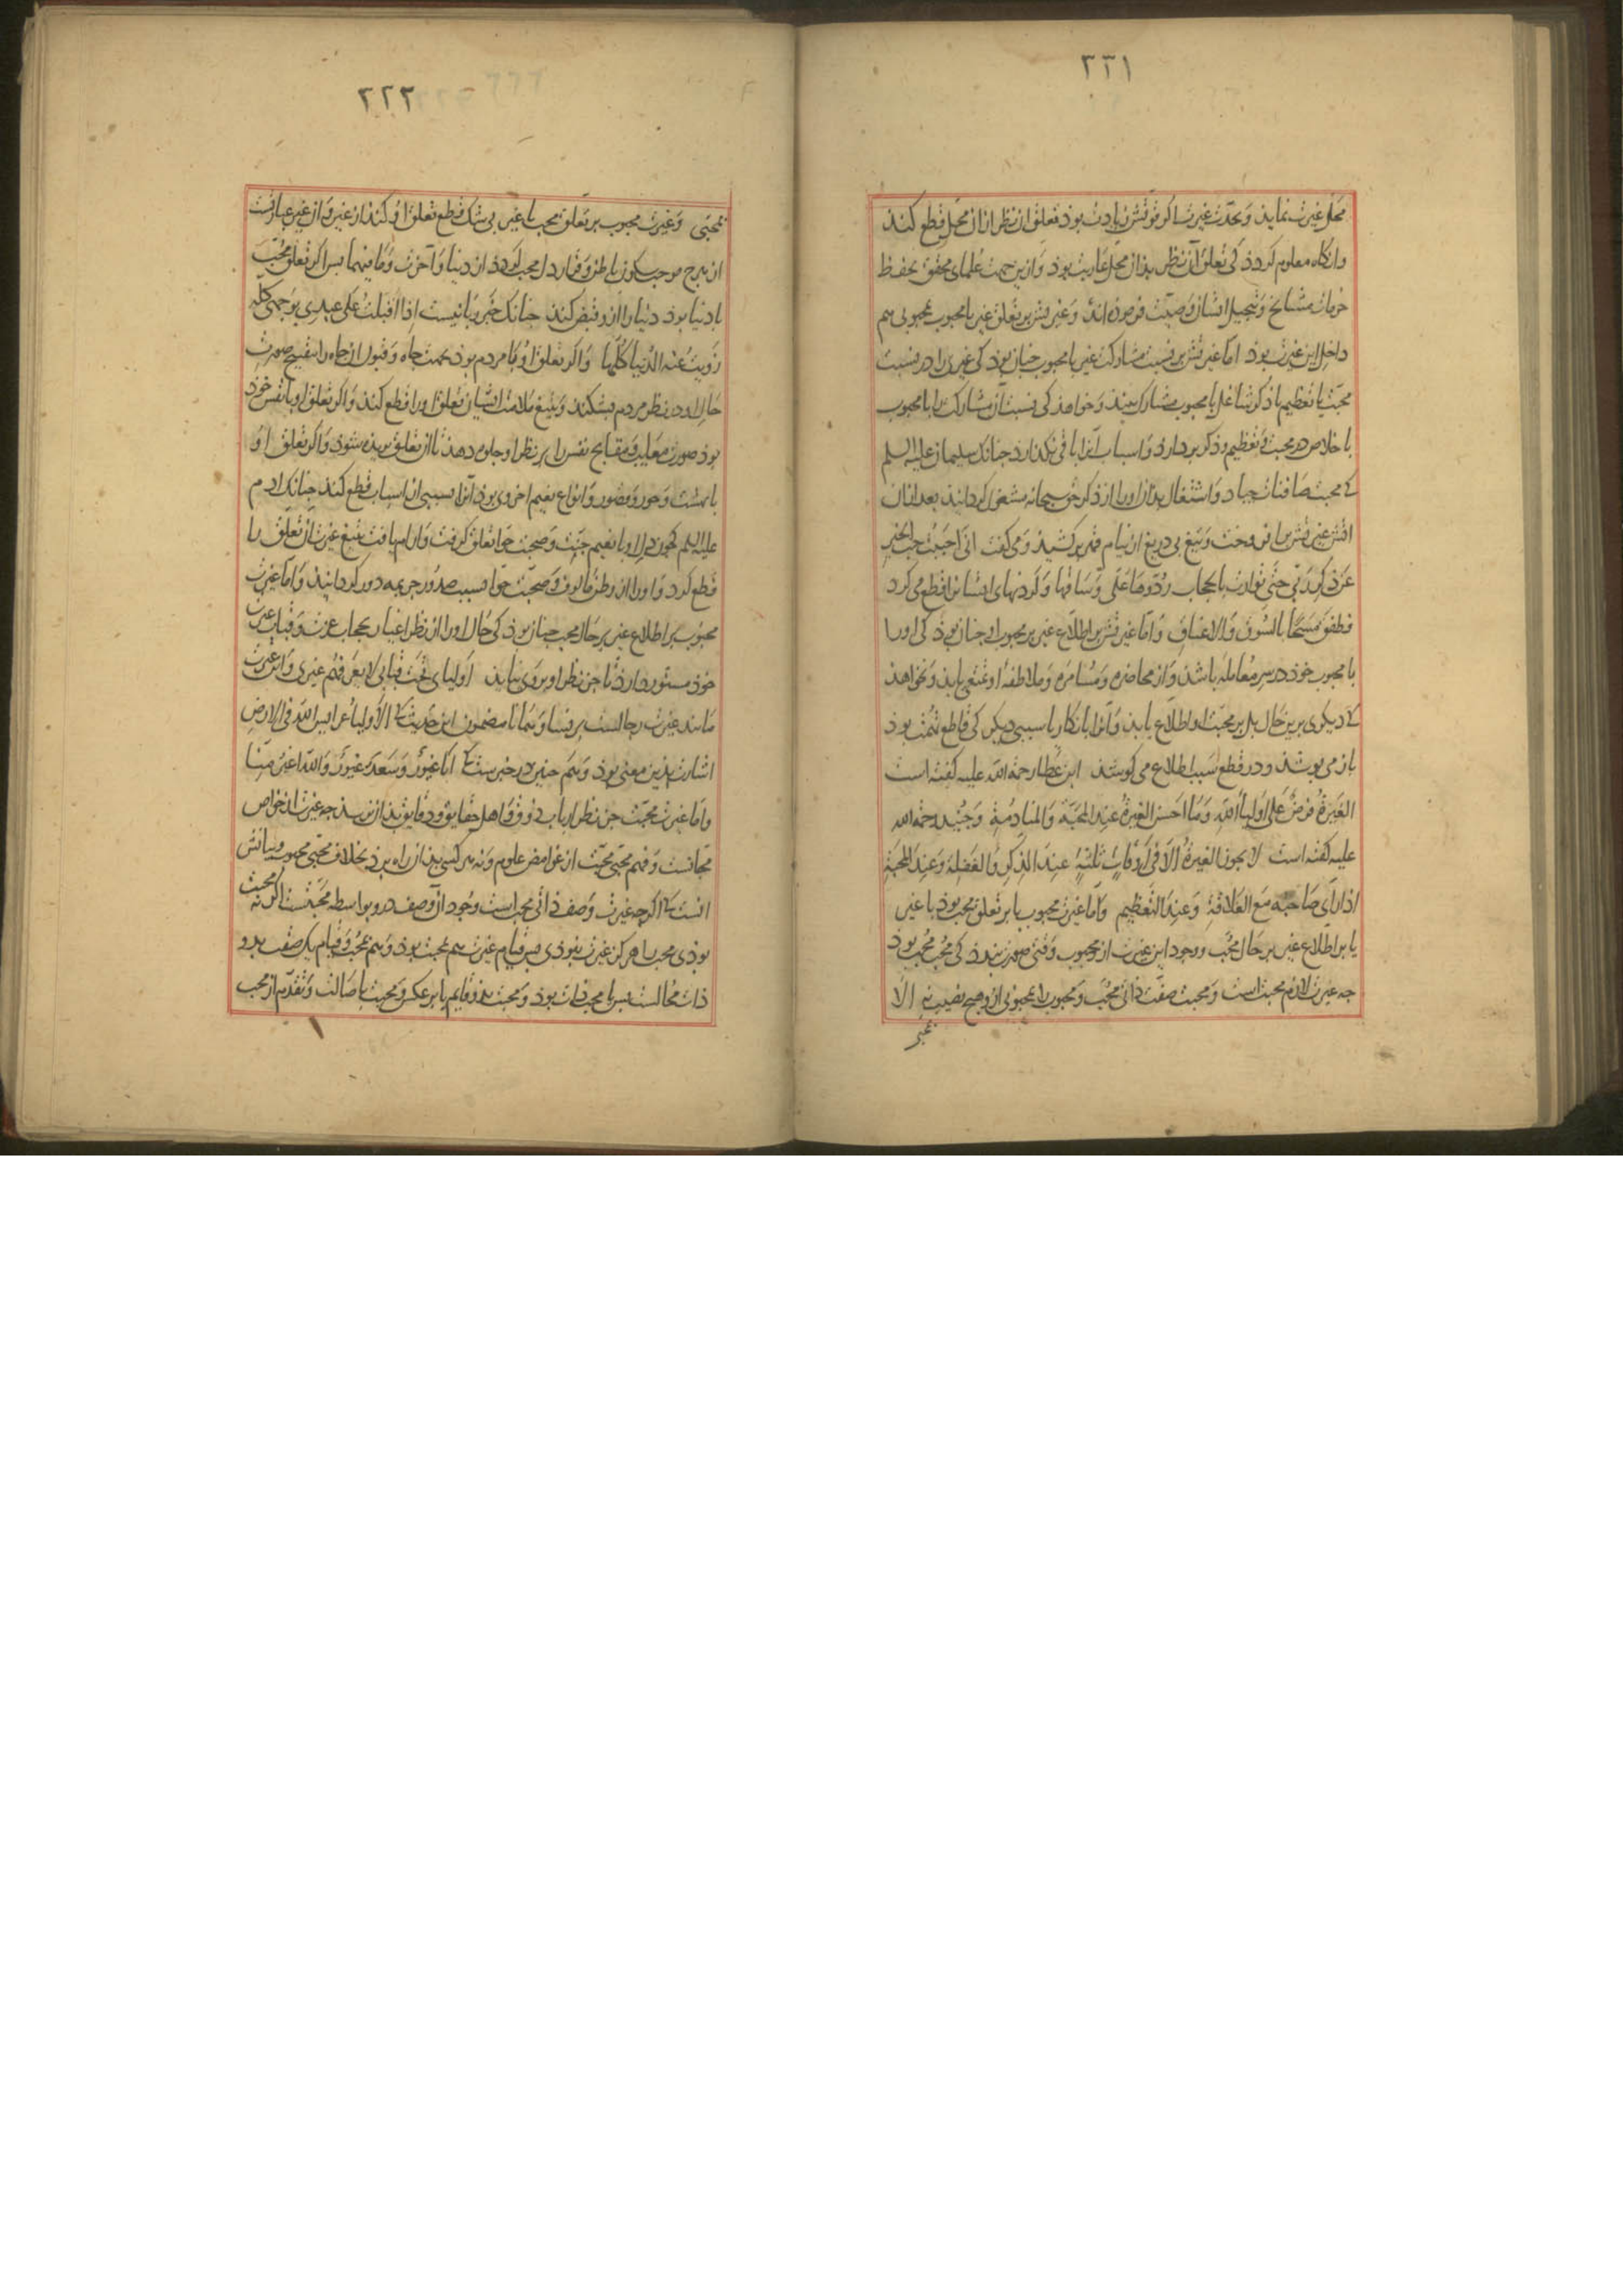 ۲۲۱
محل غیرت نماید و بحدت غیرت اگر قوتش زیادت بود تعلق ان نظر از ان محل قطع کند
وانگاه معلوم کردد کی تعلق آن نظر بذان محل عاریت بوذ وازین جهت علمای محقق بحفظ
حرمات مشایخ و تبجیل ایشان وصیت فرموده اند و غیرتش بر تعلق غیر با محبوب بمحبوبی هم
داخل این غیرت بوذ اما غیرتش بر نسبت مشارکت غیر با محبوب چنان بوذ کی غیری را در نسبت
محبت یا تعظیم یا ذکر شاغل با محبوب مشارک بیند و خواهذ کی نسبت آن مشارکت را با محبوب
باخلاص در محبت و تعظیم و ذکر بردارد و اسباب آنرا باقی نکذارد چنانک سلیمان علیه السلم
کی محبت صافنات جیاد و اشتغال بدان اورا از ذکر حق سبحانه مشغول کردانید بعد از ان
اتش غیرتش برافروخت و تیغ بی دریغ از نیام قهر برکشید و می کفت انی احببت حب الخیر
عن ذکر ربی حتی توارت بالحجاب ردوها علی و ساقها و کردنهای ایشانرا قطع می کرد
فطفق مسحا بالسوق والاعناق و اما غیرتش بر اطلاع غیر بر محبوب او چنان بوذ کی اورا
با محبوب خوذ در سر معامله باشد و از محاضره و مسامره و ملاطفه او تمتعی یابد و نخواهد
کی دیکری برین حال یا بر محبت او اطلاع یابد و آنرا بانکار یا سببی دیکر کی قاطع تهمت بوذ
باز می بوشذ و در قطع سبب اطلاع می کوشذ ابن عطا رحمة الله علیه کفته است
الغیرة فرض علی اولیاء الله و ما احسن الغیرة عند المحبة والمنادمة و جنید رحمه الله
علیه کفته است لا یجوز الغیرة الا فی اوقات ثلثة عند الذکر والغفلة و عند المحبة
اذا رای صاحبه مع العلاقة و عند التعظیم و اما غیرت محبوب یا بر تعلق محب بوذ با غیر
یا بر اطلاع غیر بر حال محب و وجود این غیرت از محبوب وقتی صورت بندد کی محب محب بوذ
چه غیرت لازم محبت است و محبت صفت ذاتی محب و محبوب را بمحبوبی از وی هیچ نصیب نه الا
بمحبی
۲۲۲
بمحبی و غیرت محبوب بر تعلق محب با غیر بی شک قطع تعلق او کند از غیر و از غیر عبارتست
از هرچ موجب سکون باطن و قرار دل محب کردد از دنیا و آخرت و ما فیهما بس اکر تعلق محب
با دنیا بوذ دنیا را ازو قبض کند چنانک خبر ربانیست اذا اقبلت علی عبدی بوجهی کله
زویت عنه الدنیا کلها و اکر تعلق او با مردم بوذ بجهت جاه و قبول از جاه را بتقبیح صورت
حال او در نظر مردم بشکند و بتیغ ملامت ایشان تعلق اورا قطع کند و اکر تعلق او با نفس خوذ
بوذ صورت معایب و مقابح نفس را بر نظر او جلوه دهد تا از تعلق بریده شوذ و اکر تعلق او
با بهشت و حور و قصور و انواع نعیم اخروی بوذ آنرا بسببی از اسباب قطع کند چنانک ادم
علیه السلم کی چون دل او با نعیم جنت و صحبت حوا تعلق کرفت و ارام یافت بتیغ غیرت آن تعلق را
قطع کرد و اورا از وطن مالوف و صحبت حوا بسبب صدور جریمه دور کردانید و اما غیرت
محبوب بر اطلاع غیر بر حال محب چنان بوذ کی حال اورا از نظر اغیار بحجاب عزت و قباب غیرت
خوذ مستور دارد تا جز نظر او بر وی نیاید اولیای تحت قبابی لا یعرفهم غیری و این غیرت
مانند غیرت رجالست بر نسا و همانا مضمون این حدیث کی الاولیاء عرایس الله فی الارض
اشارت بذین معنی بوذ و هم چنین در خبرست کی انا غیور و سعد غیور والله اغیر منا
و اما غیرت محبت جز نظر ارباب ذوق و اهل حقایق و دقایق بذان نرسذ چه غیرت از خواص
محبانست و فهم محبی محبت از غوامض علوم و نه هر کسی بذان راه برد بخلاف محبی محبوب و بیانش
انست کی اکرچه غیرت وصف ذاتی محب است وجود آن وصف درو بواسطه محبتست اکر نه محبت
بوذی محب را هرکز غیرت نبوذی بس قیام غیرت هم بمحبت بوذ و هم بمحب و قیام یک صفت بدو
ذات محالست بس یا بمحب ذات بوذ و محبت بذو قایم یا بر عکس و محبت باصالت و تقدم از محب